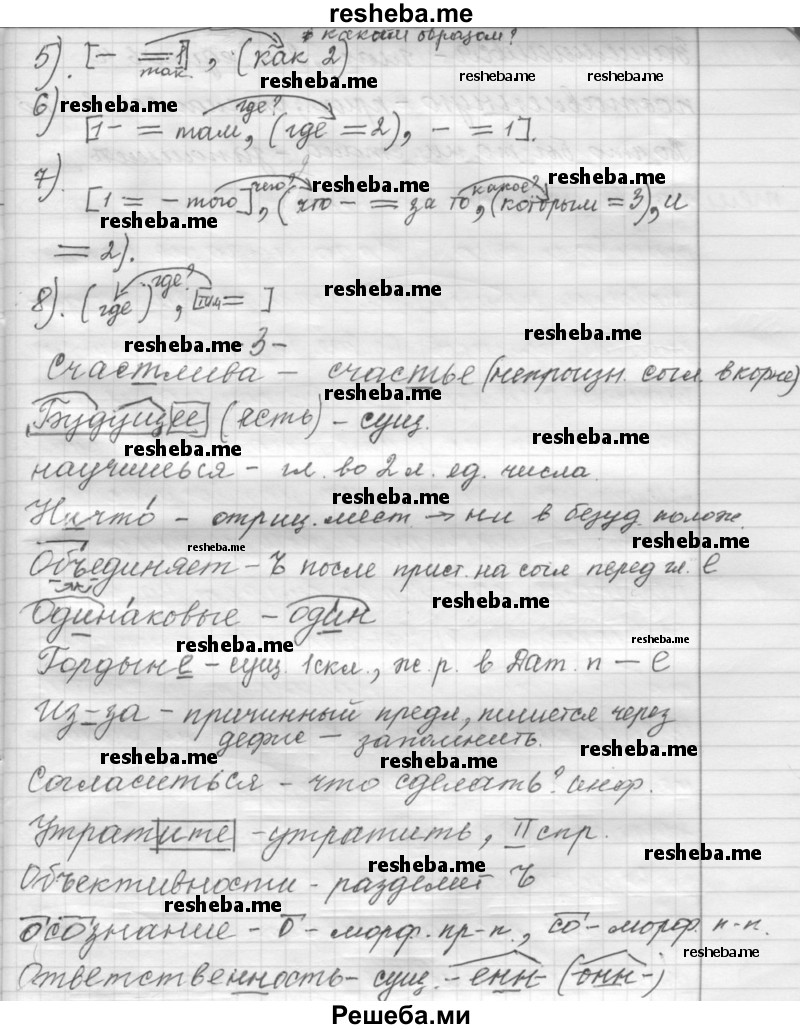 resheba.me
каким образом?
5). [- = 1], (как 2)
так.
resheba.me resheba.me resheba.me
6) resheba.me где?
[1 - = там, (где = 2), - = 1].
7). чего? resheba.me какое? resheba.me
[1 = - того], (что - = за то, (которым = 3), и
resheba.me
= 2).
8). (где), где? [= ] resheba.me
resheba.me -3- resheba.me
Счастлива - счастье (непроизн. согл. в корне)
resheba.me
Будущее (есть) - сущ. resheba.me
resheba.me
научишься - гл. во 2 л. ед. числа.
resheba.me
Ничто́ - отриц. мест → ни в безуд. полож.
resheba.me resheba.me
Объединяет - ъ после прист. на согл перед гл. е
Одина́ковые - один resheba.me
resheba.me resheba.me
Гордыне - сущ. 1 скл., ж. р. в Дат. п - е
Из-за - причинный предл, пишется через
дефис - запомнить.
resheba.me resheba.me resheba.me
Согласиться - что сделать? инф.
Утратите - утратить, II спр.
resheba.me resheba.me
Объективности - разделит ъ
resheba.me
осознание - о - морф. пр-п., со - морф. п-п.
resheba.me
Ответственность - сущ. - енн - (онн -)
Решеба.ми